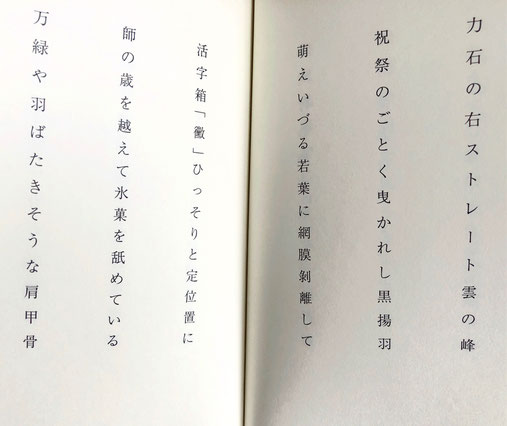 力石の右ストレート雲の峰
祝祭のごとく曳かれし黒揚羽
萌えいづる若葉に網膜剝離して
活字箱「黴」ひっそりと定位置に
師の歳を越えて氷菓を舐めている
万緑や羽ばたきそうな肩甲骨